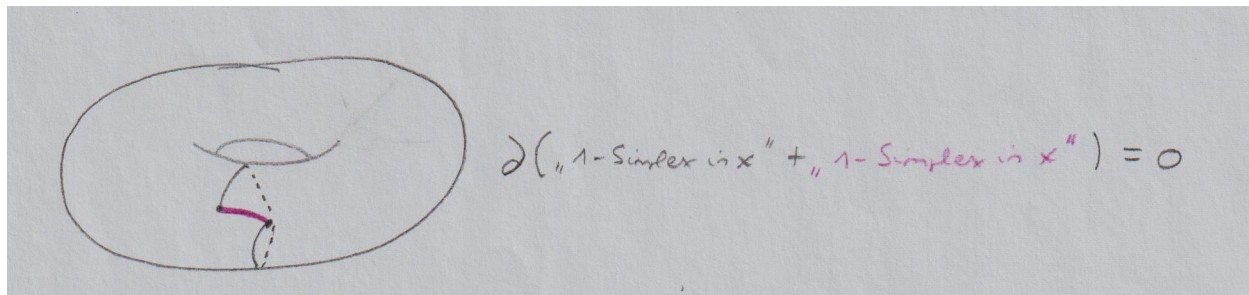 ∂(„1-Simplex in x" + „1-Simplex in x") = 0